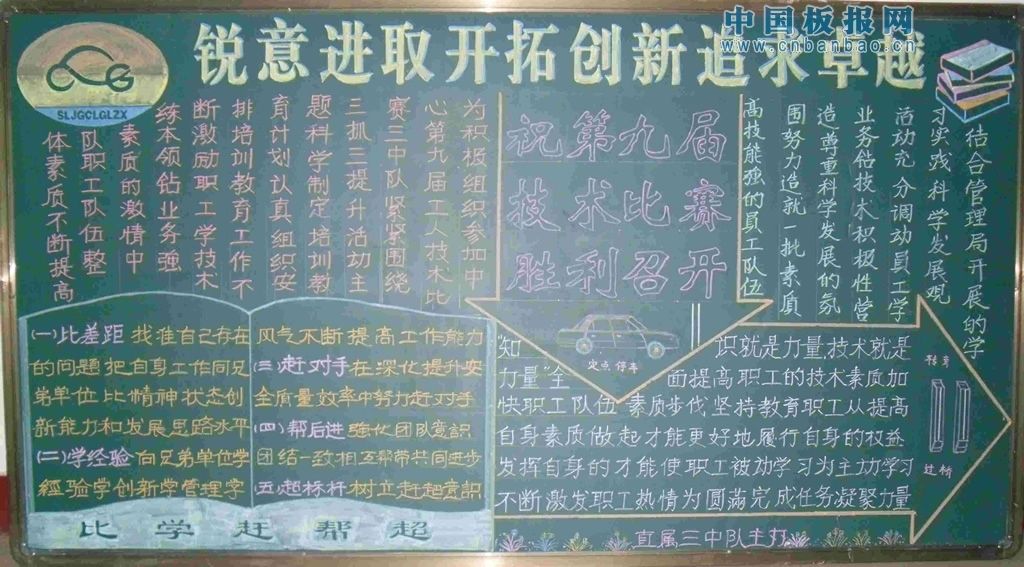 中国板报网
www.cnbanbao.cn
锐意进取开拓创新追求卓越
SLJGCLGLZX
为积极组织参加中
心第九届工人技术比
赛三中队紧紧围绕
三抓三提升活动主
题科学制定培训教
育计划认真组织安
排培训教育工作不
断激励职工学技术
练本领钻业务强
素质的激情中
队职工队伍整
体素质不断提高
祝第九届
技术比赛
胜利召开
结合管理局开展的学
习实践科学发展观
活动充分调动員工学
业务钻技术积极性营
造尊重科学发展的氛
围努力造就一批素质
高技能强的員工队伍
(一)比差距 找准自己存在
的问题把自身工作同兄
弟单位比精神状态创
新能力和发展思路水平
(二)学经验 向兄弟单位学
经验学创新学管理学
风气不断提高工作能力
(三)赶对手在深化提升安
全质量效率中努力赶对手
(四)帮后进强化团队意識
团结一致相互帮带共同进步
(五)超标杆树立赶超意識
比学赶帮超
定点停车
移库
过桥
"知识就是力量,技术就是
力量"全面提高职工的技术素质加
快职工队伍素质步伐坚持教育职工从提高
自身素质做起才能更好地履行自身的权益
发挥自身的才能使职工被动学习为主动学习
不断激发职工热情为圆滿完成任务凝聚力量
直属三中队主办